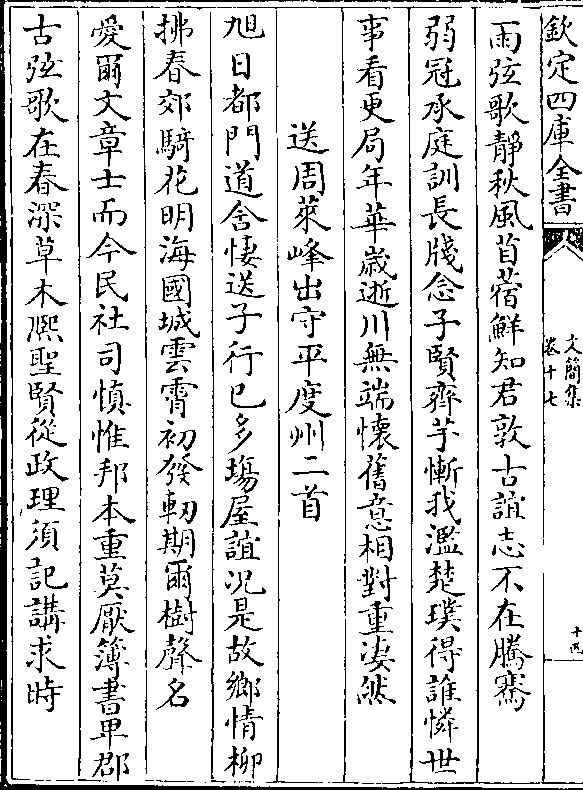 欽定四庫全書
文簡集
卷十七
十四
雨弦歌靜秋風苜蓿鮮知君敦古誼志不在騰騫
弱冠承庭訓長牋念子賢齊竽慚我濫楚璞得誰憐世
事看更局年華嵗逝川無端懷舊意相對重凄然
送周萊峰出守平度州二首
旭日都門道含悽送子行已多塲屋誼况是故鄉情柳
拂春郊騎花明海國城雲霄初發軔期爾樹聲名
愛爾文章士而今民社司慎惟邦本重莫厭簿書卑郡
古弦歌在春深草木熈聖賢從政理須記講求時